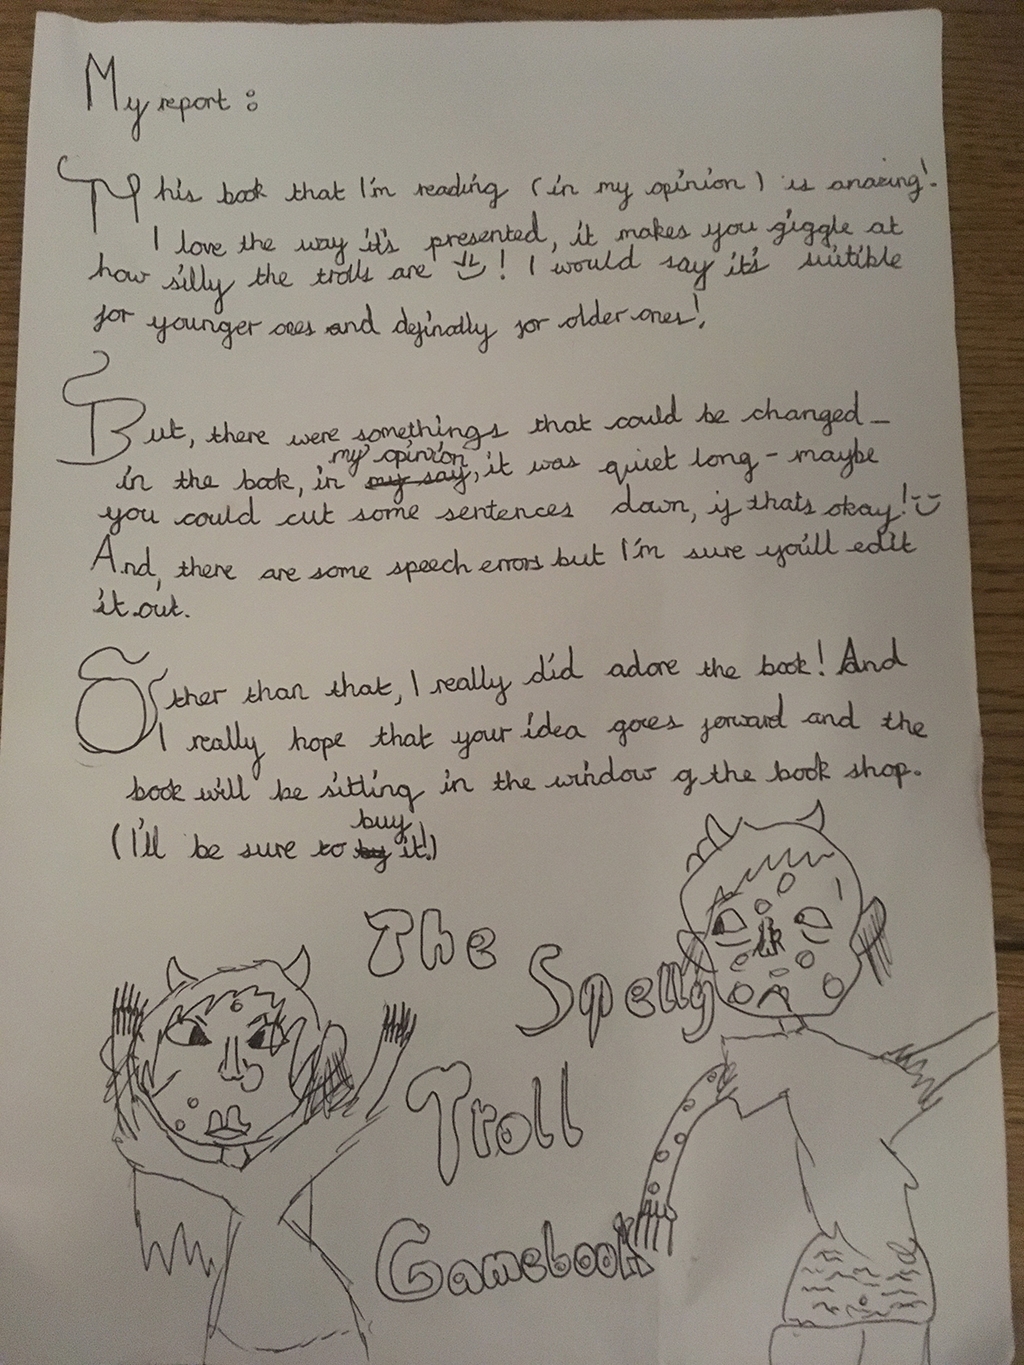 My report :
This book that I'm reading (in my opinion) is amazing!
I love the way it's presented, it makes you giggle at
how silly the trolls are ! I would say it's suitible
for younger ones and definatly for older ones!
But, there were somethings that could be changed -
in the book, in my opinion my say, it was quiet long - maybe
you could cut some sentences down, if thats okay!
And, there are some speech errors but I'm sure you'll edit
it out.
Other than that, I really did adore the book! And
I really hope that your idea goes forward and the
book will be sitting in the window of the book shop.
(I'll be sure to buy it!)
The
Spelly
Troll
Gamebook